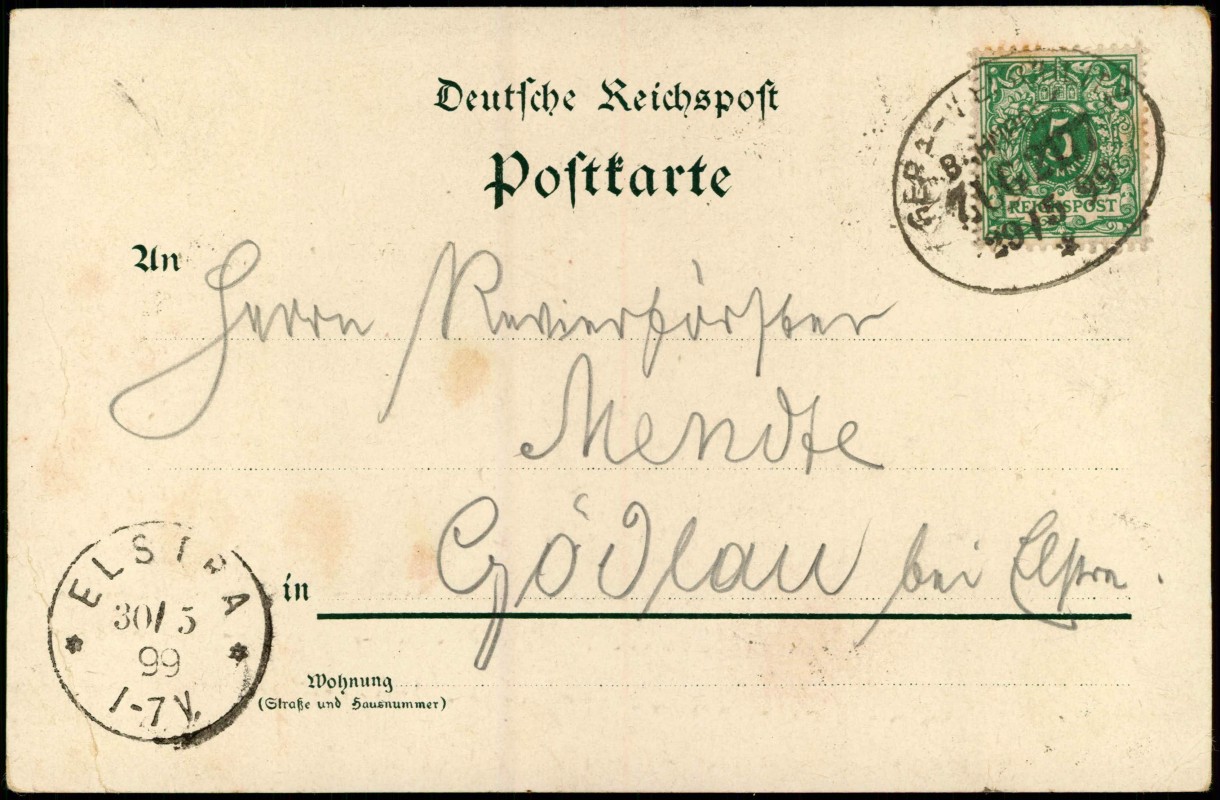 Deutsche Reichspost
Postkarte
5
REICHSPOST
GERA-
BAHNPOST
ZUG
29/5 99
An Herrn Revierförster
Mendte
in Gödlau bei Elstra.
Wohnung
(Straße und Hausnummer)
ELSTRA
30/5
99
1-7 V.